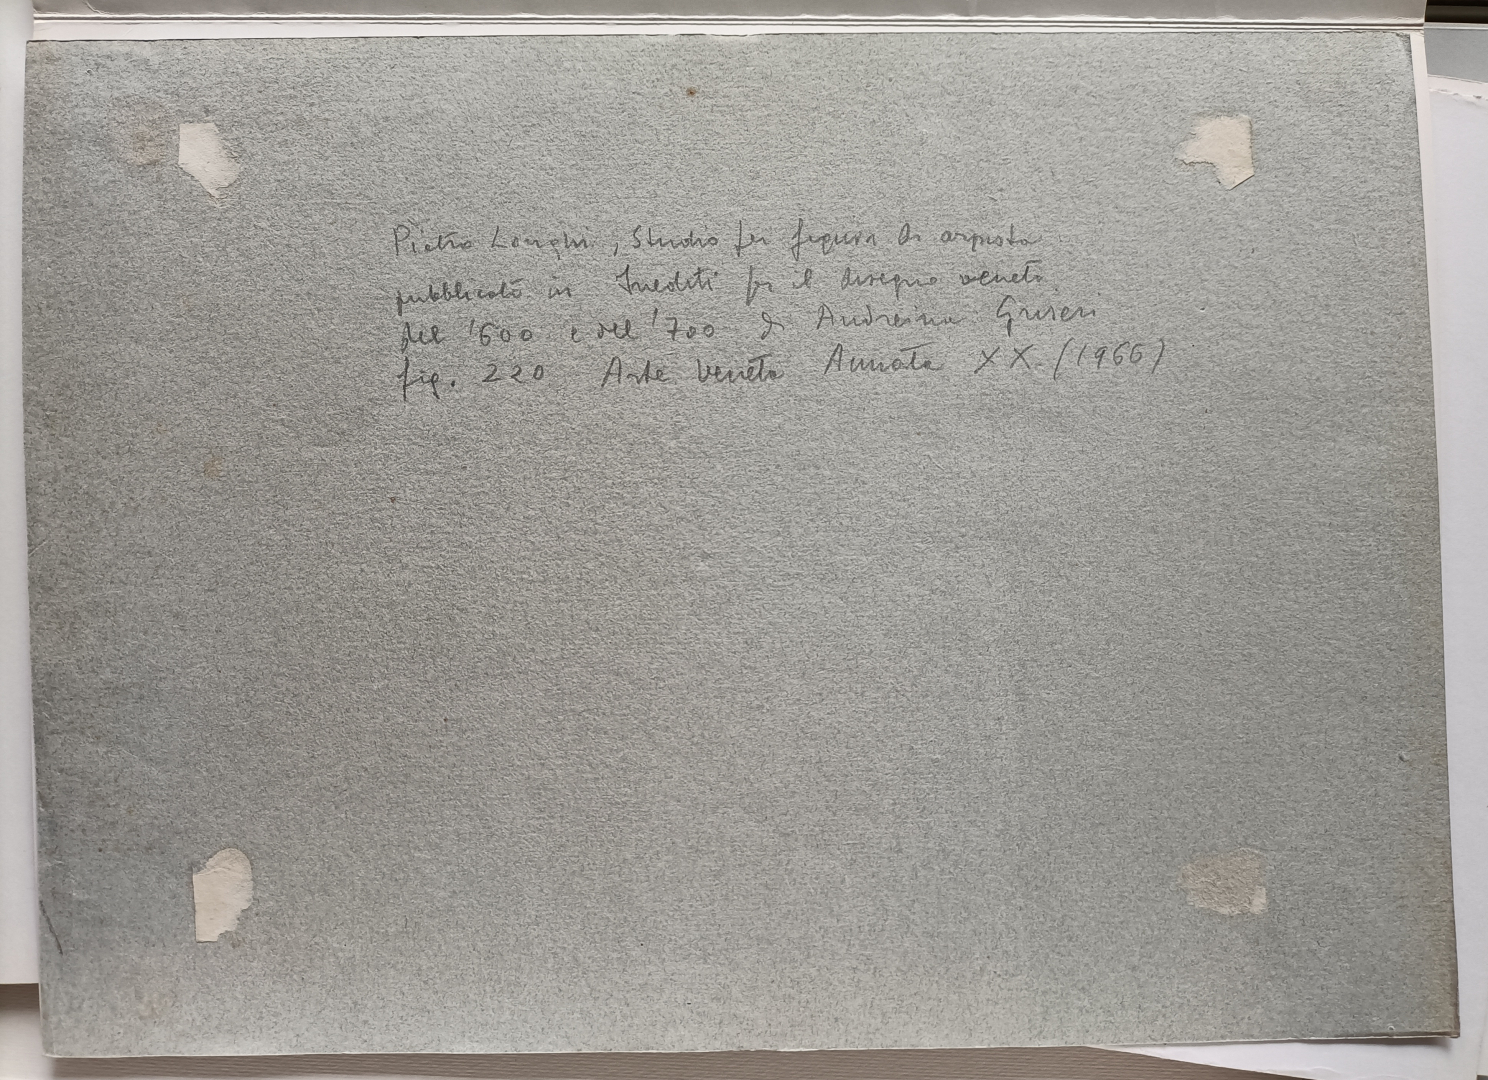 Pietro Longhi, Studio per figura di arpista
pubblicato in Inediti per il disegno veneto
del '600 e del '700 di Andreina Griseri
fig. 220 Arte Veneta Annata XX (1966)